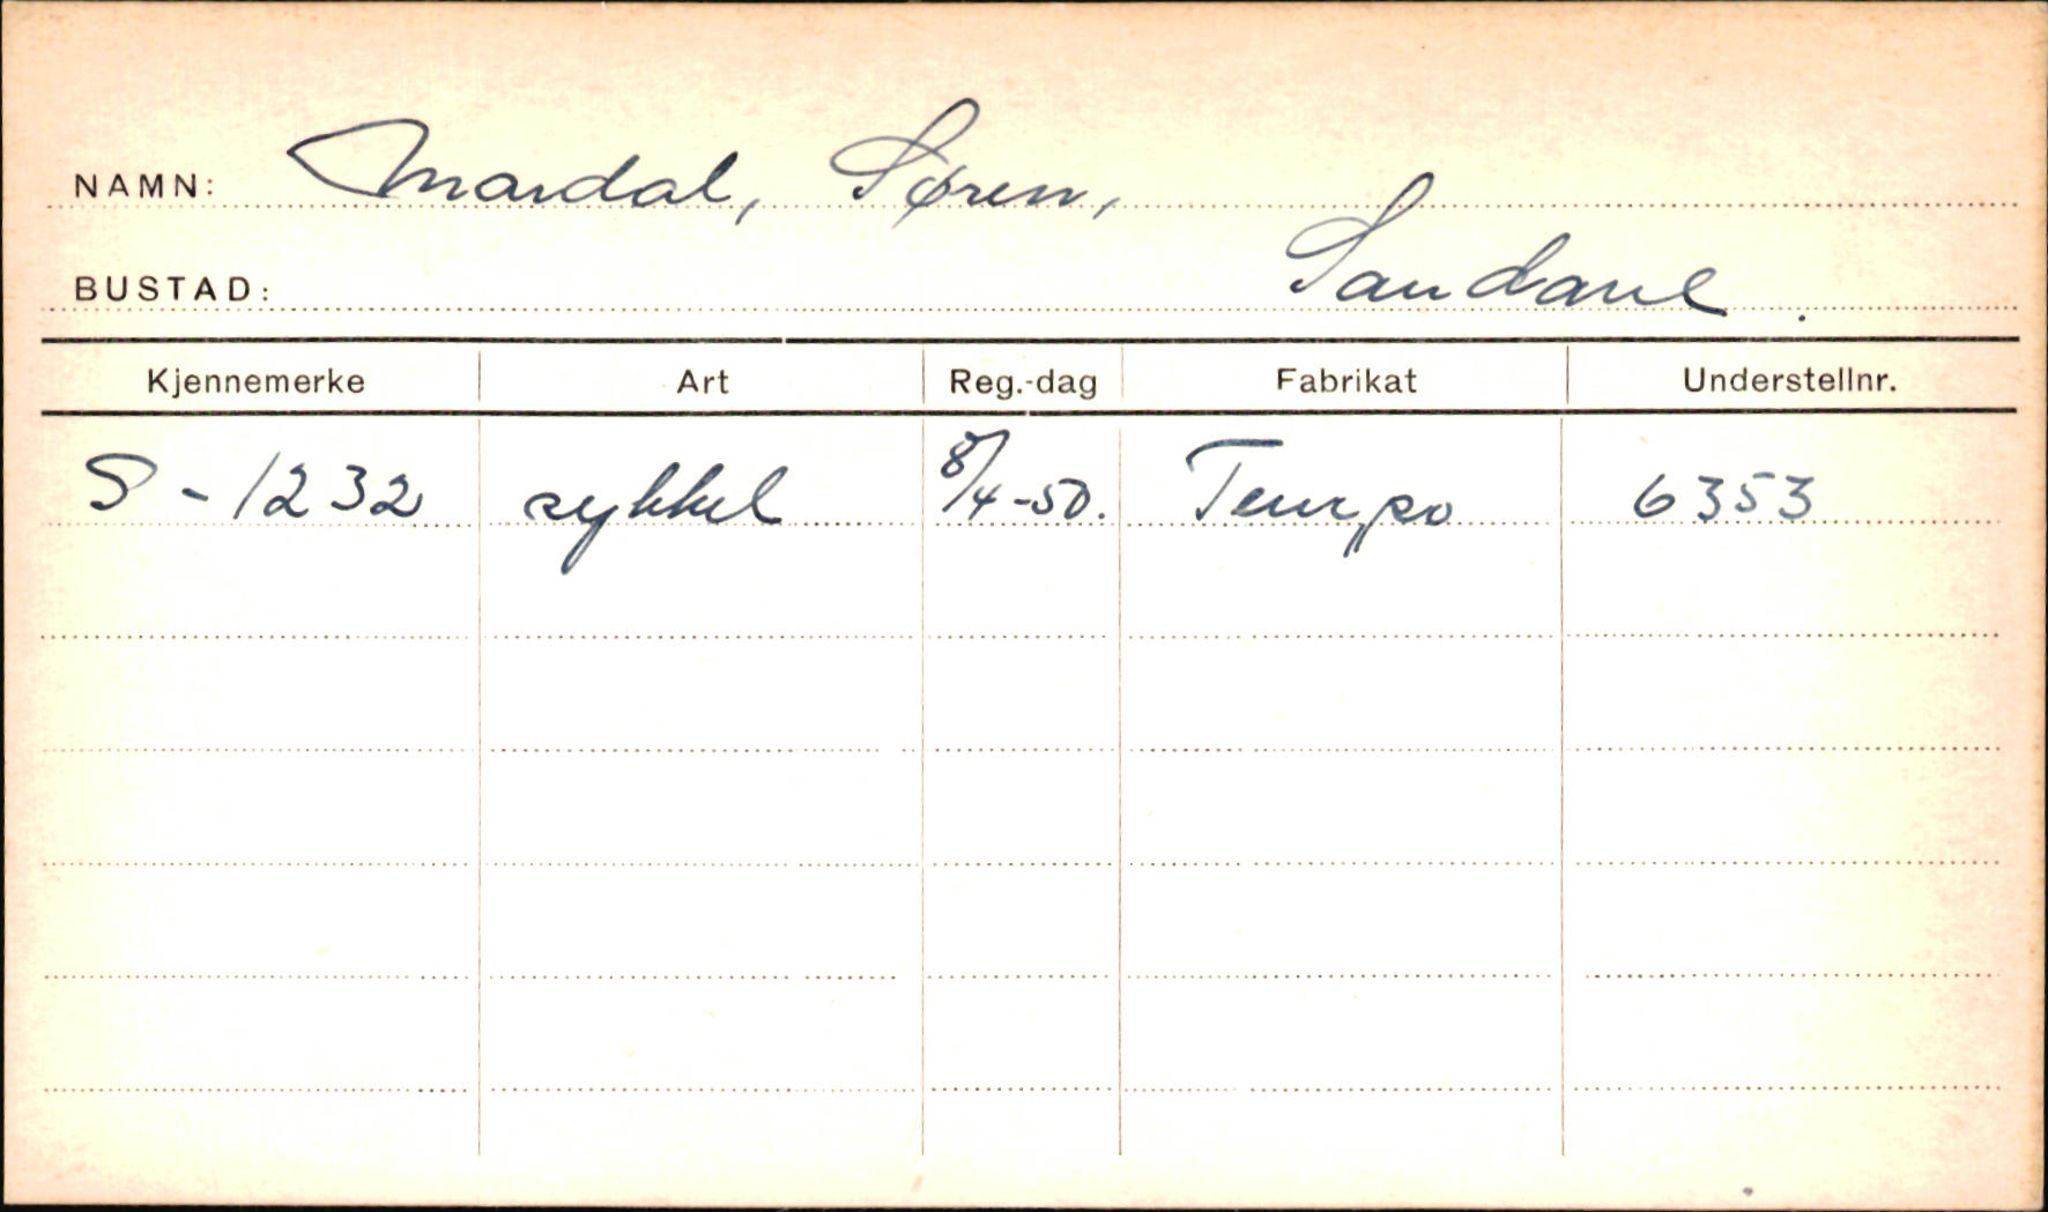 NAMN: Mardal, Søren,
BUSTAD: Sandane.
Kjennemerke Art Reg.-dag Fabrikat Understellnr.
S-1232 sykkel 8/4-50. Tempo 6353